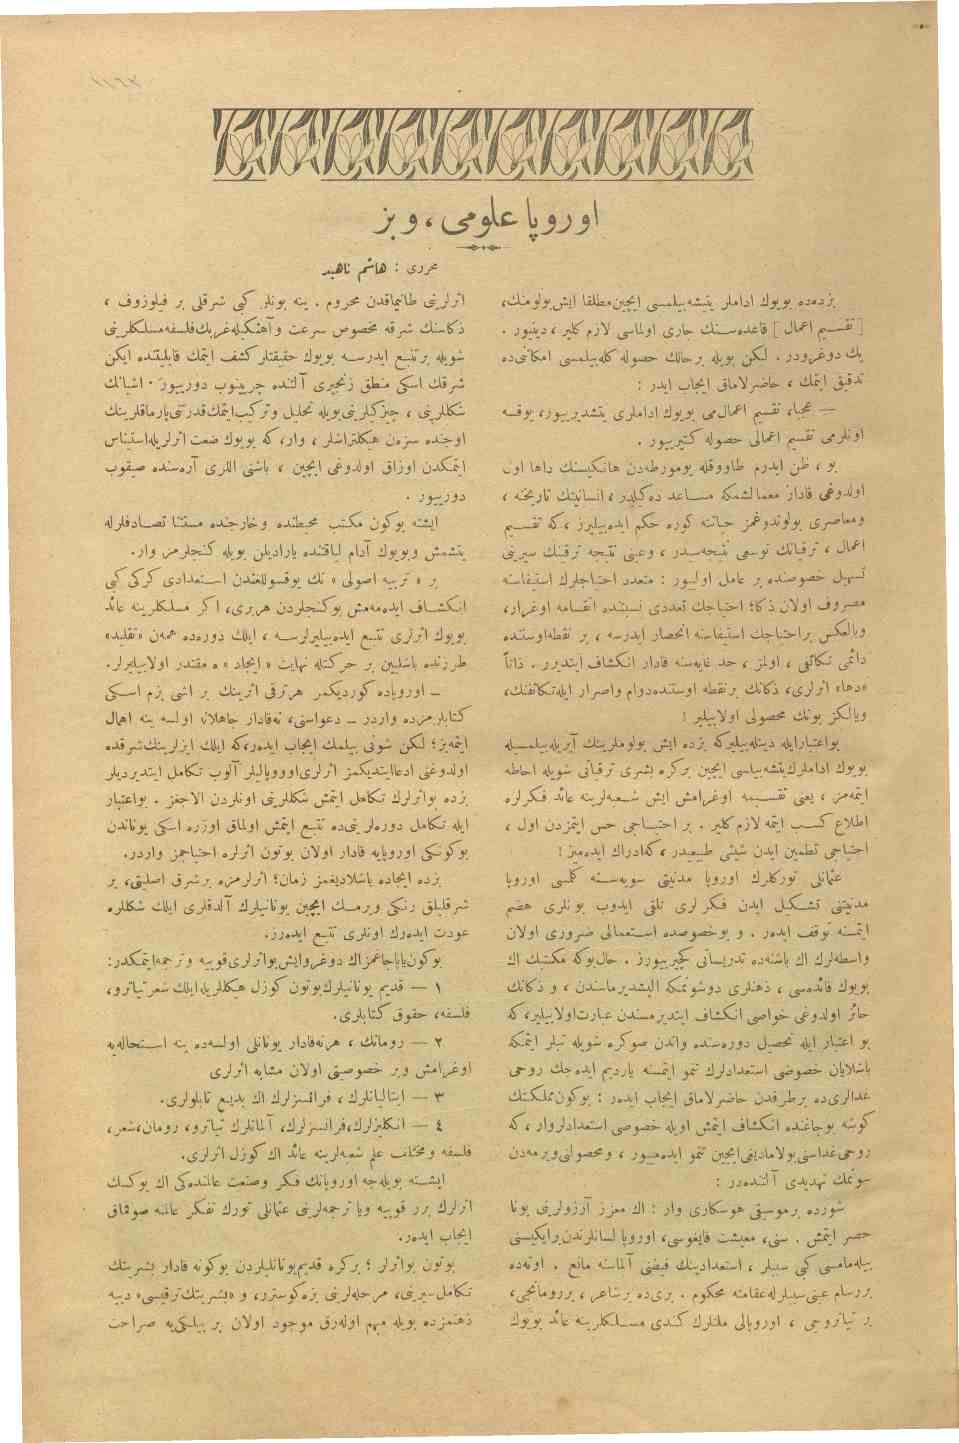 ١١٦٢
اوروپا علومی ، و بز
محرری : هاشم ناهید
بزده‌ده بویوك اداملر یتیشه‌بیلمسی ایچین‌مطلقا ایش‌بولومنك،
[ تقسیم اعمال ] قاعده‌سنك جاری اولماسی لازم كلیر ، دینیور .
پك دوغرودر . لكن بویله بر حالك حصوله كله‌بیلمسی امكانی‌ده
تدقیق ایتمك ، حاضرلامق ایجاب ایدر :
— عجبا، تقسیم اعمال‌می بویوك اداملری یتشدیریور، یوقسه
اونلرمی تقسیم اعمالی حصوله كتیریور .
بو ، ظن ایدرم طاووقله یومورطه‌دن هانكیسنك داها اول
اولدوغی قادار معمالشمكه مساعد دكلدر ، انسانیتك تاریخنه ،
ومعاصری بولوندوغمز حیاتنه كوره حكم ایده‌بیلیرز ، كه تقسیم
اعمال ، ترقیاتك توسعی نتیجه‌سیدر ، وعینی نتیجه ترقینك سیرینی
تسهیل خصوصنده بر عامل اولیور : متعدد احتیاجلرك استیفاسنه
مصروف اولان ذكا؛ احتیاجك تعددی نسبتنده انقسامه اوغرار،
وبالعكس بر احتیاجك استیفاسنه انحصار ایدرسه ، بر نقطه‌اوستنده
دائمی تكاثفی ، اولمز ، حد غایه‌سنه قادار انكشاف ایتدیرر . ذاتاً
«دها» اثرلری، ذكانك برنقطه اوستنده‌دوام واصرار ایله‌تكاثفنك،
ویالكز بونك محصولی اولابیلیر !
بواعتبارایله دینله‌بیلیركه بزده ایش بولوملرینك آیریله‌بیلمسیله
بویوك اداملرك‌یتشه‌بیلسی ایچین بركره بشری ترقیاتی شویله احاطه
ایتمه‌مز ، یعنی تقسیمه اوغرامش ایش شعبه‌لرینه عائد فكرلره
اطلاع كسب ایتمه لازم كلیر . بر احتیاجی حس ایتمزدن اول ،
احتیاجی تطمین ایدن شیئی طبیعیدر ، كه‌ادراك ایده‌میز !
عثمانلی توركلرك اوروپا مدنیتی سویه‌سنه كلسی اوروپا
مدنیتنی تشكیل ایدن فكرلری تلقی ایدوب بونلری هضم
ایتمسنه توقف ایدر . و بوخصوصده استعمالی ضروری اولان
واسطه‌لرك اك باشنده تدریساتی كچیریورز . حال‌بوكه مكتبك اك
بویوك فائده‌سی ، ذهنلری دوشونمكه الیشدیرماسندن ، و ذكانك
حائز اولدوغی خواصی انكشاف ایتدیرمسندن عبارت‌اولابیلیر، كه
بو اعتبار ایله تحصیل دوره‌سنده واندن صوكره شویله تبلر ایتمكه
باشلایان خصوصی استعدادلرك نمو ایتمسنه یاردیم ایده‌جك روحی
غدالری‌ده برطرفدن حاضرلامق ایجاب ایدر : بوكون‌مملكتك
كوشه بوجاغنده انكشاف ایتمش اویله خصوصی استعدادلروار ، كه
روحی‌غداسنی‌بولامادیغی‌ایچین نمو ایده‌میور ، ومحصولنی‌ویرمه‌دن
سونمك تهدیدی آلتنده‌در :
شورده برموسیقی هوسكاری وار : اك معزز آرزولرینی بونا
حصر ایتمش . سنی، معیشت قایغوسی، اوروپا لسانلرندن‌برایكیسنی
بیله‌مامسی كبی سببلر ، استعدادینك فیضنی آلماسنه مانع . اوته‌ده
بررسام عینی‌سببلرله‌عقامته محكوم . بری‌ده برشاعر ، بررومانجی،
بر تیاتروجی ، اوروپالی ملتلرك كندی مسلكلرینه عائد بویوك
اثرلرینی طانیماقدن محروم . ینه بونلر كبی شرقلی بر فیلوزوف ،
ذكاسنك شرقه مخصوص سرعت وآهنكیله‌غربك‌فلسفه‌مسلكلرینی
شویله برتتبع ایدرسه بویوك حقیقتلر كشف ایتمك قابلیتنده ایكن
شرقك اسكی منطق زنجیری آلتنده جرپینوب دورییور . اشیانك
شكللرینی ، چیزكیلرینی‌بویله تحلیل وتركیب‌ایتمك‌قدرتنی‌پارماقلرینك
اوجنده سزه‌ن هیكلتراشلر ، وار، كه بویوك صنعت اثرلریله‌استیناس
ایتمكدن اوزاق اولدوغی ایچین ، باشنی اللری آره‌سنده صیقوب
دورییور .
ایشته بوكون مكتب محیطنده وخارجنده مستثنا تصادفلرله
یتشمش وبویوك آدام لیاقتنده یارادیلن بویله كنجلرمز وار.
بر « تربیه اصولی » نك یوقسوللغندن استعدادی كركی كبی
انكشاف ایده‌مه‌مش بوكنجلردن هربری، اكر مسلكلرینه عائد
بویوك اثرلری تتبع ایده‌بیلیرلرسه ، ایلك دوره‌ده همه‌ن «تقلید»
طرزنده باشلیین بر حركتله نهایت « ایجاد » ه مقتدر اولابیلیرلر.
ـ اوروپاده كوردیكمز هرترقی اثرینك بر اشی بزم اسكی
كتابلرمزده واردر ـ دعواسنی، نه‌قادار جاهلانه اولسه ینه اهمال
ایتمه‌یز؛ لكن شونی بیلمك ایجاب ایدر،كه ایلك ایزلرینك‌شرقده
اولدوغنی ادعاایتدیكمز اثرلری‌اوروپالیلر آلوب تكامل ایتدیردیلر
بزده بواثرلرك تكامل ایتمش شكللرینی اونلردن الاجغز . بواعتبار
ایله تكامل دوره‌لرینی‌ده تتبع ایتمش اولمق اوزره اسكی یوناندن
بوكونكی اوروپایه قادار اولان بوتون اثرلره احتیاجمز واردر.
بزده ایجاده باشلادیغمز زمان؛ اثرلرمزه برشرق اصلیتی، بر
شرقلیلق رنكی ویرمك ایچین یونانیلرك آلدقلری ایلك شكللره
عودت ایده‌رك اونلری تتبع ایده‌رز.
بوكون‌یاپاجاغمزاك دوغروایش‌بواثرلری‌قوپیه وترجمه‌ایتمكدر:
١ — قدیم یونانیلرك‌بوتون كوزل هیكللریله‌ایلك شعرتیاترو،
فلسفه، حقوق كتابلری.
٢ — رومانك ، هرنه‌قادار یونانلی اولسه‌ده ینه استحاله‌یه
اوغرامش وبر خصوصیتی اولان مشابه اثرلری
٣ — ایتالیانلرك ، فرانسزلرك اك بدیع تابلولری.
٤ — انكلیزلرك،فرانسزلرك، آلمانلرك تیاترو، رومان،شعر،
فلسفه ومختلف علم شعبه‌لرینه عائد اك كوزل اثرلری.
ایشته بویله‌جه اوروپانك فكر وصنعت عالنده‌كی اك یوكسك
اثرلرك برر قوپیه ویا ترجمه‌لرینی عثمانلی تورك تفكر عالمنه صوقماق
ایجاب ایدر.
بوتون بواثرلر ؛ بركره قدیم‌یونانلیلردن بوكونه قادار بشریتك
تكامل‌سیرینی، مرحله‌لرینی بزه‌كوسترر، و «بشریتك‌ترقیسی» دییه
ذهنمزده بویله مبهم اوله‌رق موجود اولان بر بیلكی‌یه صراحت